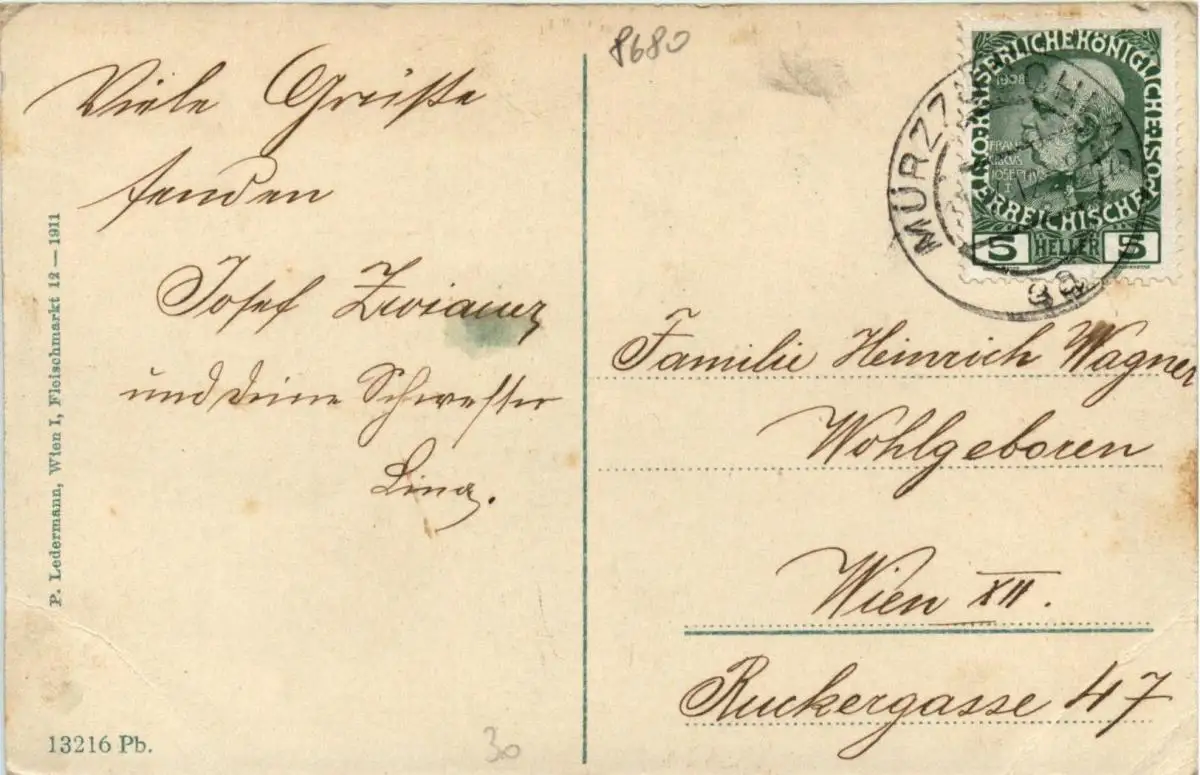 Viele Grüße
senden
Josef Zwiauer
und deine Schwester
Lina.
P. Ledermann, Wien I, Fleischmarkt 12 — 1911
13216 Pb.
30
8680
KAISERLICHE KÖNIGLICHE ÖSTERREICHISCHE POST
1908
FRANCISCUS JOSEPHUS I
5 HELLER 5
MÜRZZUSCHLAG
Familie Heinrich Wagner
Wohlgeboren
Wien XII.
Ruckergasse 47